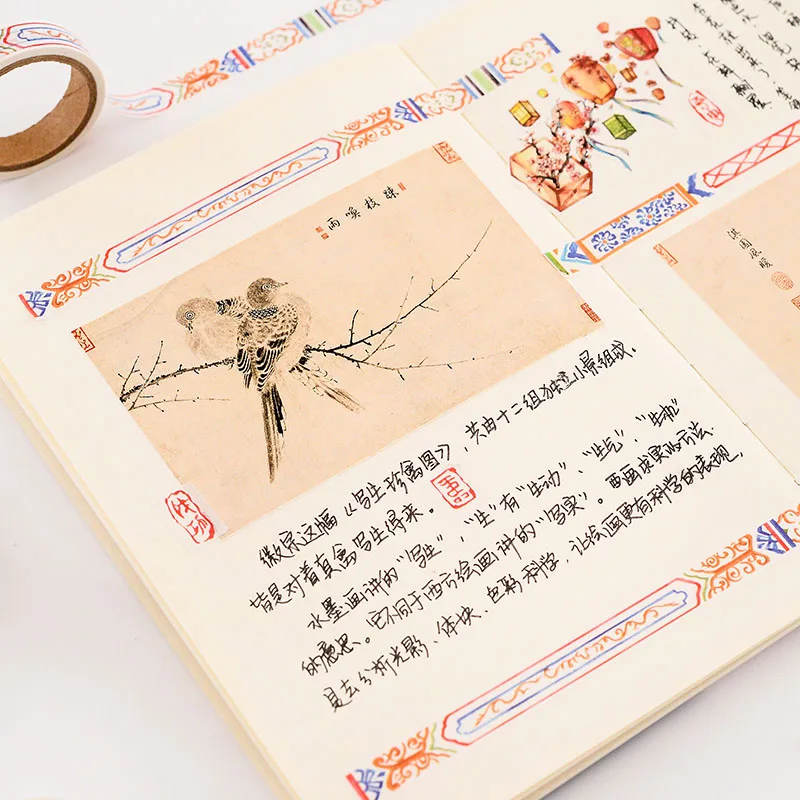 疎枝喚雨
徽宗这幅《写生珍禽图》，共由十二组独立小景组成，
皆是对着真禽写生得来。
水墨画讲的“写生”，“生”有“生动”、“生气”、“生机”
的意思。它不同于西方绘画讲的“写实”。西画求实的方法
是去分析光影、体块、色彩科学，让绘画更有科学的表现，
淇園風暖